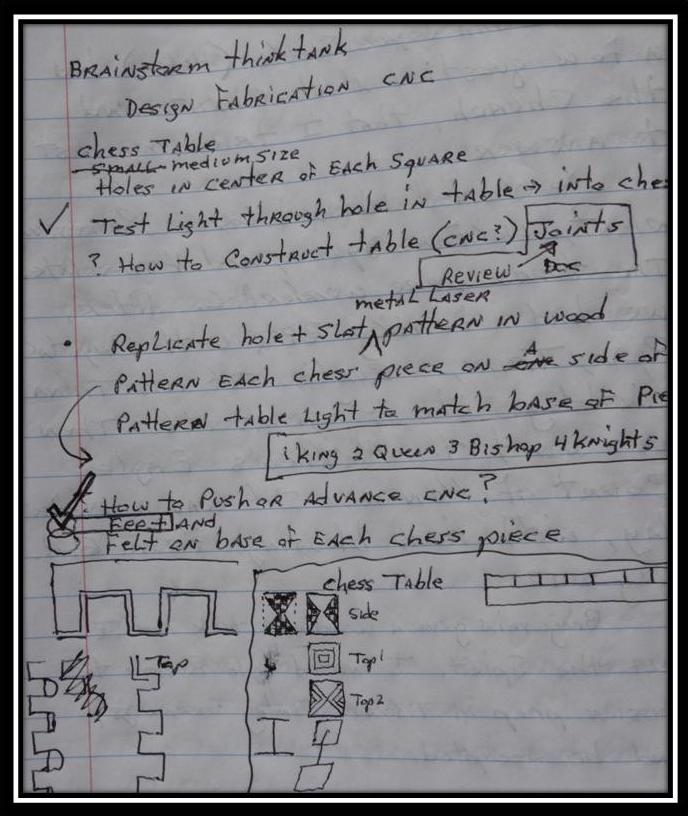 BRAINSTORM thinktANK
DESIGN FABRICATION CNC
chess TABLE
SMALL medium SIZE
HOLES IN CENTER OF EACH SQUARE
TEST LIGHT through hole IN TABLE → INTO ches
? How to CONSTRUCT table (CNC?) Joints
REVIEW DOC
metal LASER
• REPLICATE hole + SLOT ^ pattern IN wood
PATTERN EACH chess piece ON A side of
PATTERN table LIGHT to match base of PIE
1 KING 2 QUEEN 3 BISHOP 4 KNIGHTS
How to PUSH OR ADVANCE CNC?
FEET AND
FELT ON base of EACH chess piece
chess TABLE
side
Top
Top1
Top2